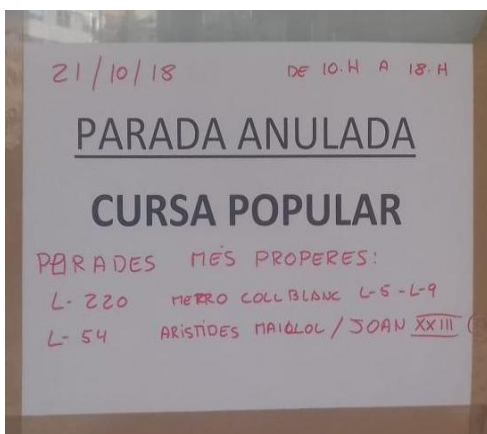 21/10/18 DE 10.H A 18.H
PARADA ANULADA
CURSA POPULAR
PARADES MÉS PROPERES:
L-220 METRO COLLBLANC L-5-L-9
L-54 ARISTIDES MAIOLOL / JOAN XXIII